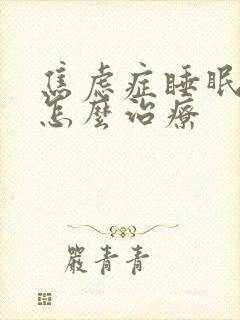 焦虑症睡眠
怎麼治療
嚴青青